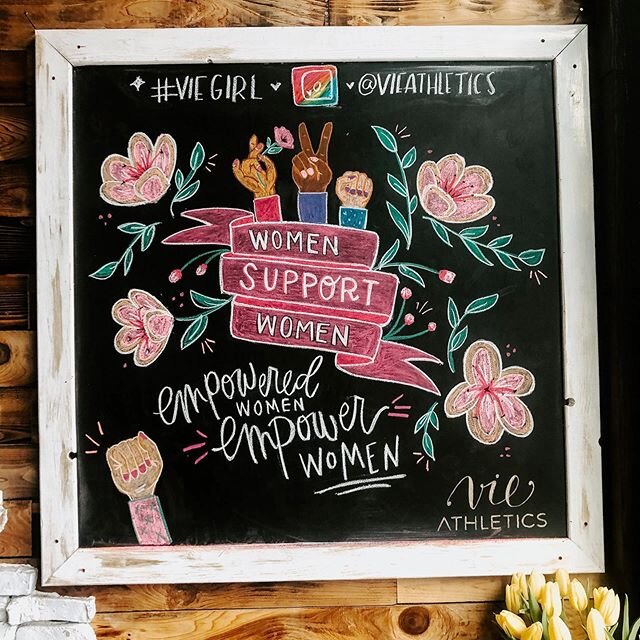 #VIEGIRL
@VIEATHLETICS
WOMEN
SUPPORT
WOMEN
empowered
WOMEN
empower
WOMEN
vie
ATHLETICS